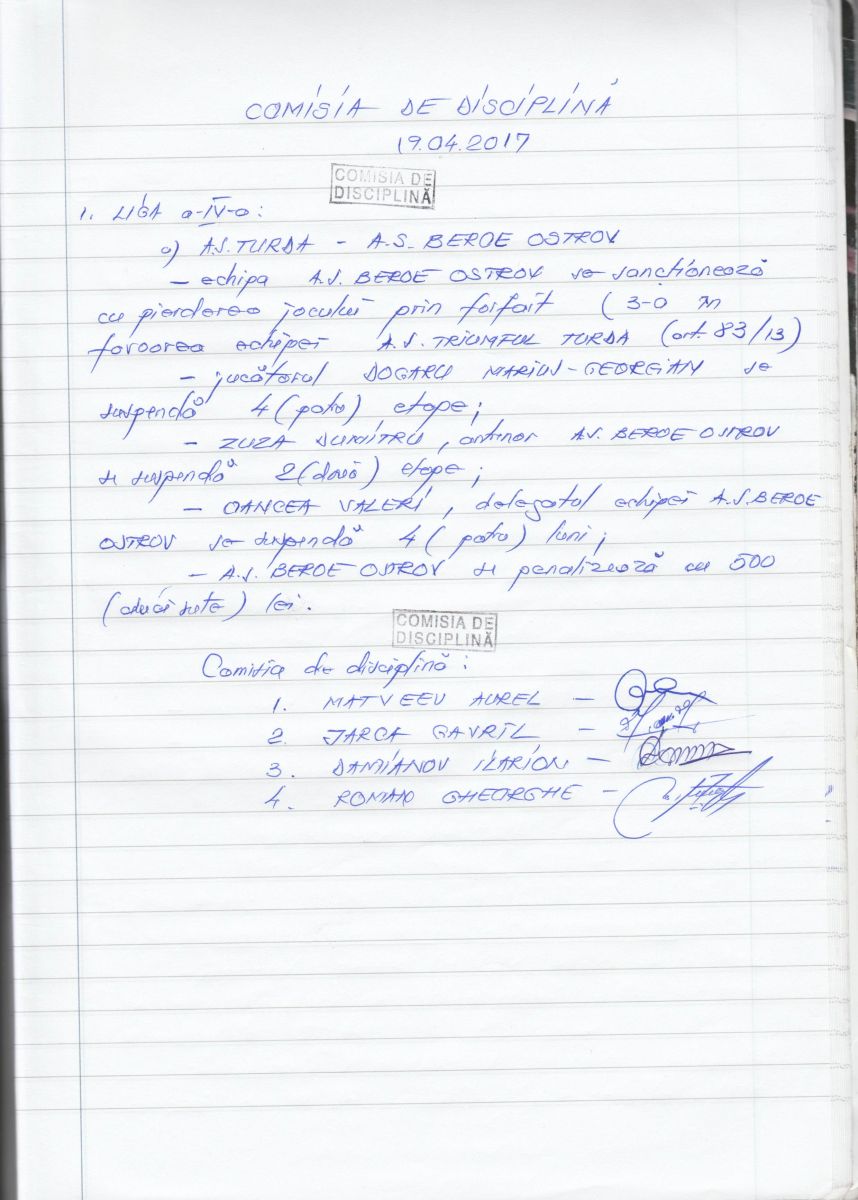 COMISIA DE DISCIPLINĂ
19.04.2017
COMISIA DE
DISCIPLINĂ
1. LIGA a-IV-a:
a) A.S. TURDA - A.S. BEROE OSTROV
- echipa A.S. BEROE OSTROV se sancționează
cu pierderea jocului prin forfait (3-0 în
favoarea echipei A.S. TRIUMFUL TURDA (art. 83/13)
- jucătorul DOGARU MARIUS-GEORGIAN se
suspendă 4 (patru) etape;
- ZUZA DUMITRU, antrenor A.S. BEROE OSTROV
se suspendă 2 (două) etape;
- OANCEA VALERI, delegatul echipei A.S. BEROE
OSTROV se suspendă 4 (patru) luni;
- A.S. BEROE OSTROV se penalizează cu 500
sute) lei.
COMISIA DE
DISCIPLINĂ
Comisia de disciplină:
1. MATVEEV AUREL -
2. JARCA GAVRIL -
3. DAMIANOV ILARION -
4. GHEORGHE -